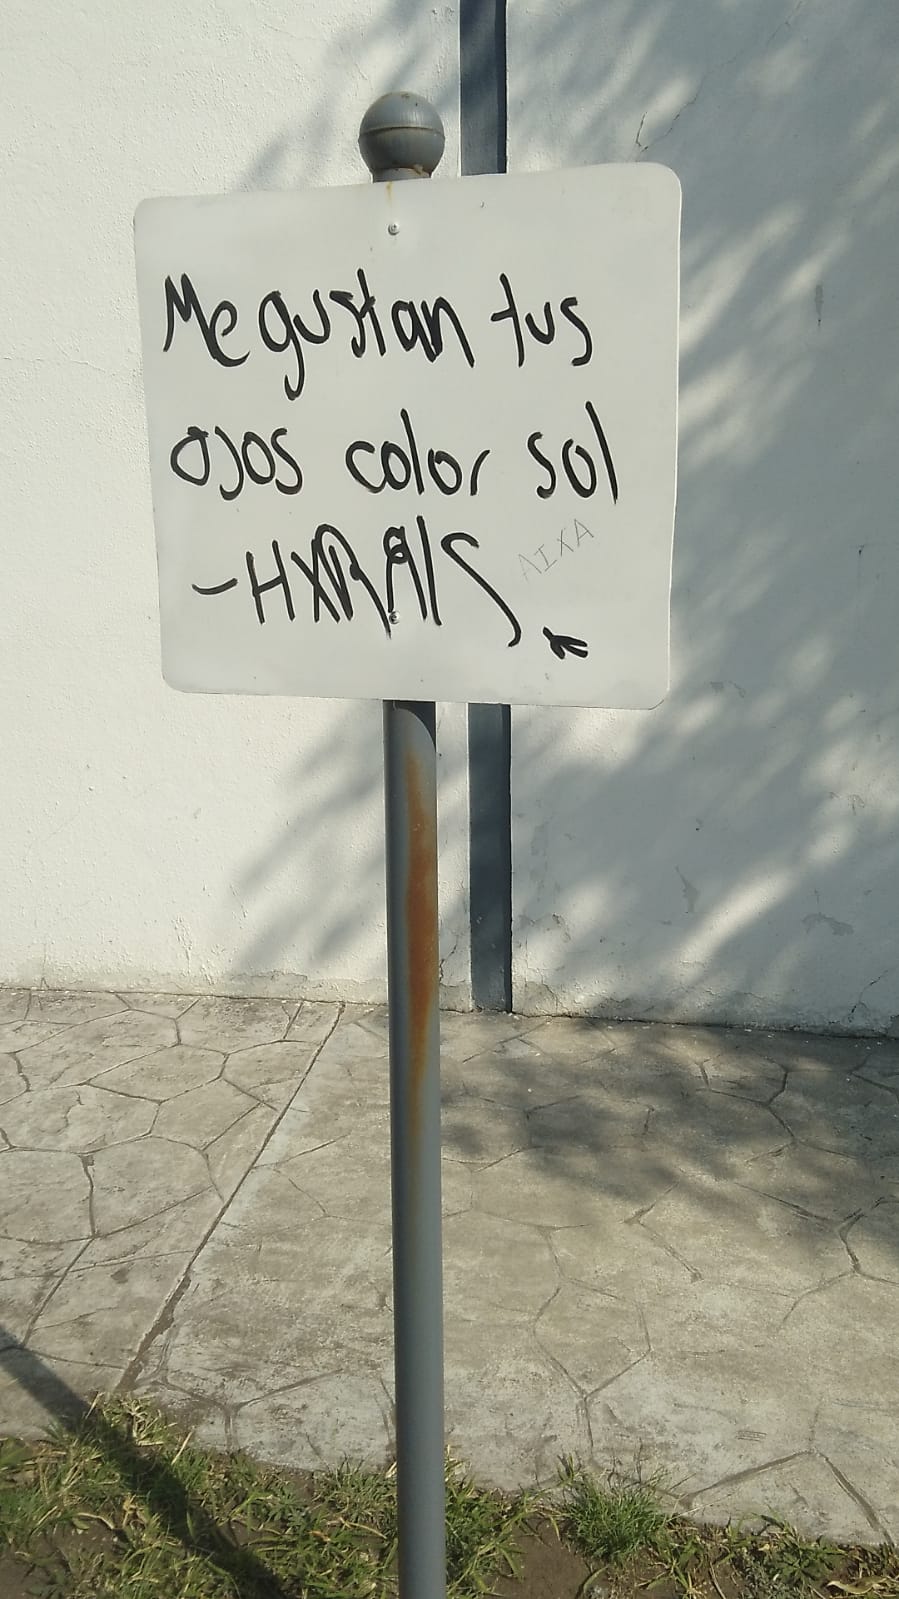 Me gustan tus
ojos color sol
AIXA